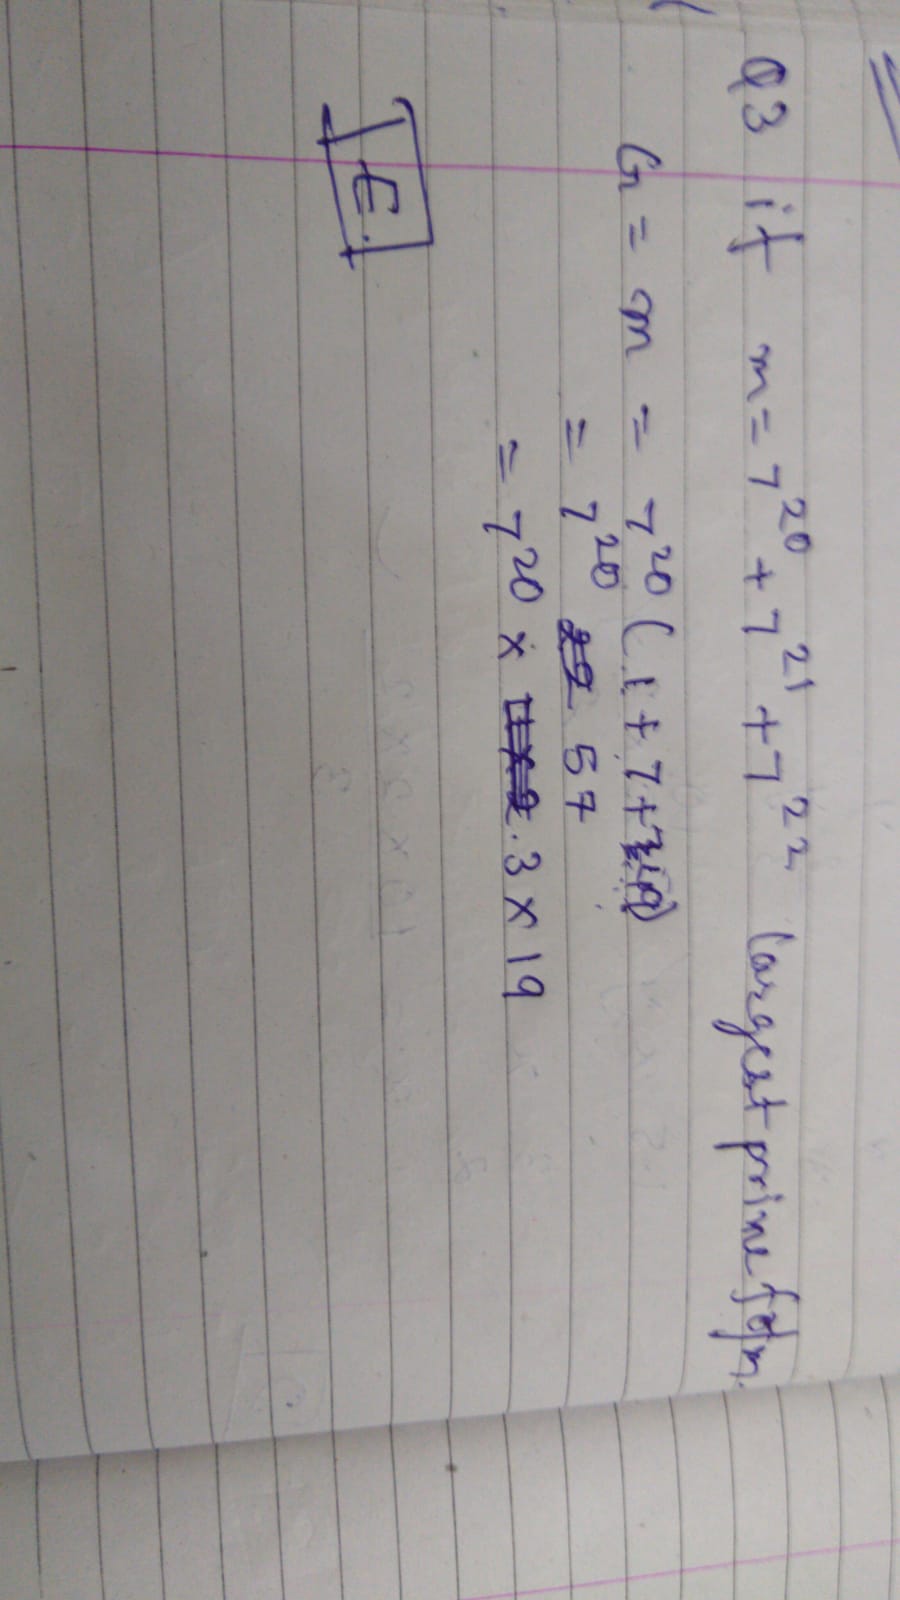 Q3 if m = 7²⁰ + 7²¹ + 7²² largest prime
G = m = 7²⁰ (1 + 7 + 49)
= 7²⁰ 57
= 7²⁰ × 3 × 19
E.